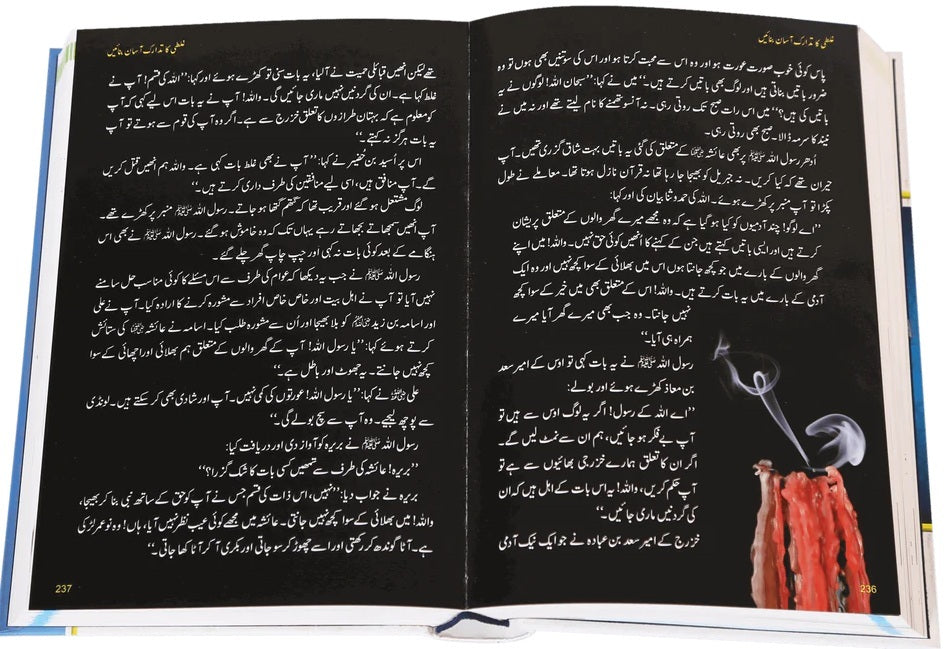 غلطی کا تدارک آسان بنائیں
پاس کوئی خوب صورت عورت ہو اور وہ اس سے محبت کرتا ہو اور اس کی سوتنیں بھی ہوں تو وہ
ضرور باتیں بناتی ہیں اور لوگ بھی باتیں کرتے ہیں۔‘‘ میں نے کہا: ’’سبحان اللہ! لوگوں نے یہ
باتیں کی ہیں؟‘‘ میں اس رات صبح تک روتی رہی۔ نہ آنسو تھمنے کا نام لیتے تھے اور نہ میں نے
نیند کا سرمہ ڈالا۔ صبح بھی روتی رہی۔
اُدھر رسول اللہ ﷺ پر بھی عائشہ رضی اللہ عنہا کے متعلق کی گئی یہ باتیں بہت شاق گزری تھیں۔ آپ
حیران تھے کہ کیا کریں۔ نہ جبریل کو بھیجا جا رہا تھا نہ قرآن نازل ہوتا تھا۔ معاملے نے طول
پکڑا تو آپ منبر پر کھڑے ہوئے۔ اللہ کی حمد و ثنا بیان کی اور کہا:
’’اے لوگو! چند آدمیوں کو کیا ہو گیا ہے کہ وہ مجھے میرے گھر والوں کے متعلق پریشان
کرتے ہیں اور ایسی باتیں کہتے ہیں جن کے کہنے کا انھیں کوئی حق نہیں۔ واللہ! میں اپنے
گھر والوں کے بارے میں جو کچھ جانتا ہوں اس میں بھلائی کے سوا کچھ نہیں اور وہ ایک
آدمی کے بارے میں یہ بات کرتے ہیں۔ واللہ! اس کے متعلق بھی میں خیر کے سوا کچھ
نہیں جانتا۔ وہ جب بھی میرے گھر آیا میرے
ہمراہ ہی آیا۔‘‘
رسول اللہ ﷺ نے یہ بات کہی تو اوس کے امیر سعد
بن معاذ کھڑے ہوئے اور بولے:
’’اے اللہ کے رسول! اگر یہ لوگ اوس سے ہیں تو
آپ بے فکر ہو جائیں، ہم ان سے نمٹ لیں گے۔
اگر ان کا تعلق ہمارے خزرجی بھائیوں سے ہے تو
آپ حکم کریں، واللہ! یہ اس بات کے اہل ہیں کہ ان
کی گردنیں ماری جائیں۔‘‘
خزرج کے امیر سعد بن عبادہ نے جو ایک نیک آدمی
236
غلطی کا تدارک آسان بنائیں
تھے لیکن انھیں قبائلی حمیت نے آ لیا، یہ بات سنی تو کھڑے ہوئے اور کہا: ’’اللہ کی قسم! آپ نے
غلط کہا ہے۔ ان کی گردنیں نہیں ماری جائیں گی۔ واللہ! آپ نے یہ بات اس لیے کہی کہ آپ
کو معلوم ہے کہ بہتان طرازوں کا تعلق خزرج سے ہے۔ اگر وہ آپ کی قوم سے ہوتے تو آپ
یہ بات ہرگز نہ کہتے۔‘‘
اس پر اُسید بن حضیر نے کہا: ’’آپ نے بھی غلط بات کہی ہے۔ واللہ ہم انھیں قتل کریں
گے۔ آپ منافق ہیں، اسی لیے منافقین کی طرف داری کرتے ہیں۔‘‘
لوگ مشتعل ہو گئے اور قریب تھا کہ گتھم گتھا ہو جاتے۔ رسول اللہ ﷺ منبر پر کھڑے تھے۔
آپ انھیں سمجھاتے بجھاتے رہے یہاں تک کہ وہ خاموش ہو گئے۔ رسول اللہ ﷺ نے بھی اس
ہنگامے کے بعد کوئی بات نہ کہی اور چپ چاپ گھر چلے گئے۔
رسول اللہ ﷺ نے جب یہ دیکھا کہ عوام کی طرف سے اس مسئلے کا کوئی مناسب حل سامنے
نہیں آیا تو آپ نے اہل بیت اور خاص خاص افراد سے مشورہ کرنے کا ارادہ کیا۔ آپ نے علی
اور اسامہ بن زید رضی اللہ عنہم کو بلا بھیجا اور اُن سے مشورہ طلب کیا۔ اسامہ نے عائشہ رضی اللہ عنہا کی ستائش
کرتے ہوئے کہا: ’’یا رسول اللہ! آپ کے گھر والوں کے متعلق ہم بھلائی اور اچھائی کے سوا
کچھ نہیں جانتے۔ یہ جھوٹ اور باطل ہے۔‘‘
علی رضی اللہ عنہ نے کہا: ’’یا رسول اللہ! عورتوں کی کمی نہیں۔ آپ اور شادی بھی کر سکتے ہیں۔ لونڈی
سے پوچھ لیجیے۔ وہ آپ سے سچ بولے گی۔‘‘
رسول اللہ ﷺ نے بریرہ کو آواز دی اور دریافت کیا:
’’بریرہ! عائشہ کی طرف سے تمھیں کسی بات کا شک گزرا؟‘‘
بریرہ نے جواب دیا: ’’نہیں، اس ذات کی قسم جس نے آپ کو حق کے ساتھ نبی بنا کر بھیجا،
واللہ! میں بھلائی کے سوا کچھ نہیں جانتی۔ عائشہ میں مجھے کوئی عیب نظر نہیں آیا، ہاں! وہ نو عمر لڑکی
ہے۔ آٹا گوندھ کر رکھتی اور اسے چھوڑ کر سو جاتی اور بکری آ کر آٹا کھا جاتی۔‘‘
237